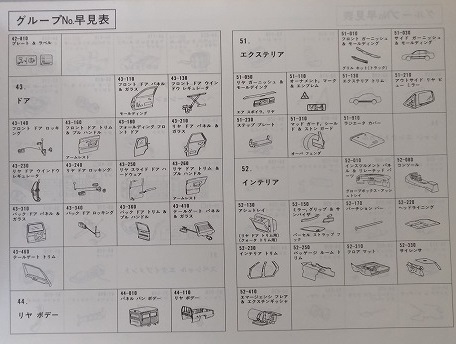 グループNo.早見表
42-010
プレート & ラベル
43.
ドア
43-110
フロント ドア パネル & ガラス
モールディング
43-130
フロント ドア ウインドウ レギュレータ
43-140
フロント ドア ロッキング
43-160
フロント ドア トリム & プル ハンドル
アームレスト
43-180
フォールディング フロント ドア
43-210
リヤ ドア パネル & ガラス
43-230
リヤ ドア ウインドウ レギュレータ
43-240
リヤ ドア ロッキング
43-250
リヤ スライド ドア ハードウェア
43-260
リヤ ドア トリム & プル ハンドル
アームレスト
43-310
バック ドア パネル & ガラス
43-340
バック ドア ロッキング
43-360
バック ドア トリム & プル ハンドル
43-410
テールゲート パネル & ガラス
43-460
テールゲート トリム
44.
リヤ ボデー
44-010
パネル バン ボデー
44-110
リヤ ボデー
51.
エクステリア
51-010
フロント ガーニッシュ & モールディング
グリル キット(トラック)
51-020
サイド ガーニッシュ & モールディング
51-030
リヤ ガーニッシュ & モールディング
エア スポイラ, リヤ
51-110
オーナメント, マーク & エンブレム
51-130
エクステリア トリム
51-210
アウトサイド リヤ ビュー ミラー
51-230
ステップ プレート
51-310
マッド ガード, シールド & ストン ガード
オーバ フェンダ
51-330
デジネータ カバー
52.
インテリア
52-010
インスツルメント パネル & リレーテッド パーツ
グローブボックス・アッシュトレイ
52-020
コンソール
52-130
アシュトレイ
(リヤ ドア トリム用)
(クォータ トリム用)
52-150
ミラー, グリップ & サンバイザ
パーセル ストラップ フック
52-210
パーテション バー
52-220
ヘッドライニング
52-230
インテリア トリム
52-250
パッケージ ルーム トリム
52-310
フロア マット
52-330
サイレンサ
52-410
エマージェンシ フレア & エクステンギッシャ